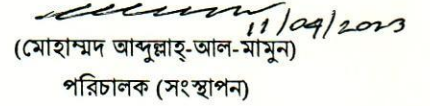 11/04/2023
(মোহাম্মদ আব্দুল্লাহ্-আল-মামুন)
পরিচালক (সংস্থাপন)